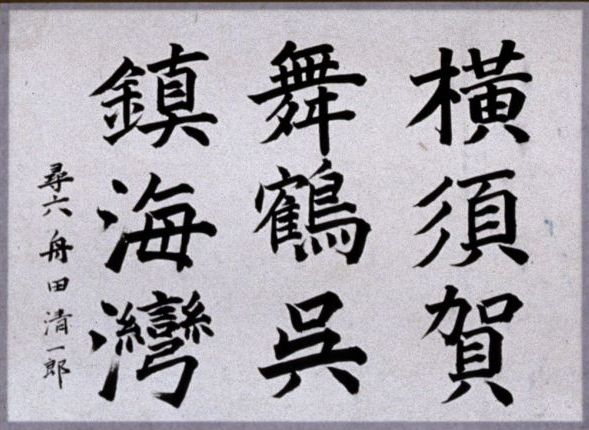 橫須賀
舞鶴吳
鎮海灣
尋六 舟田清一郎